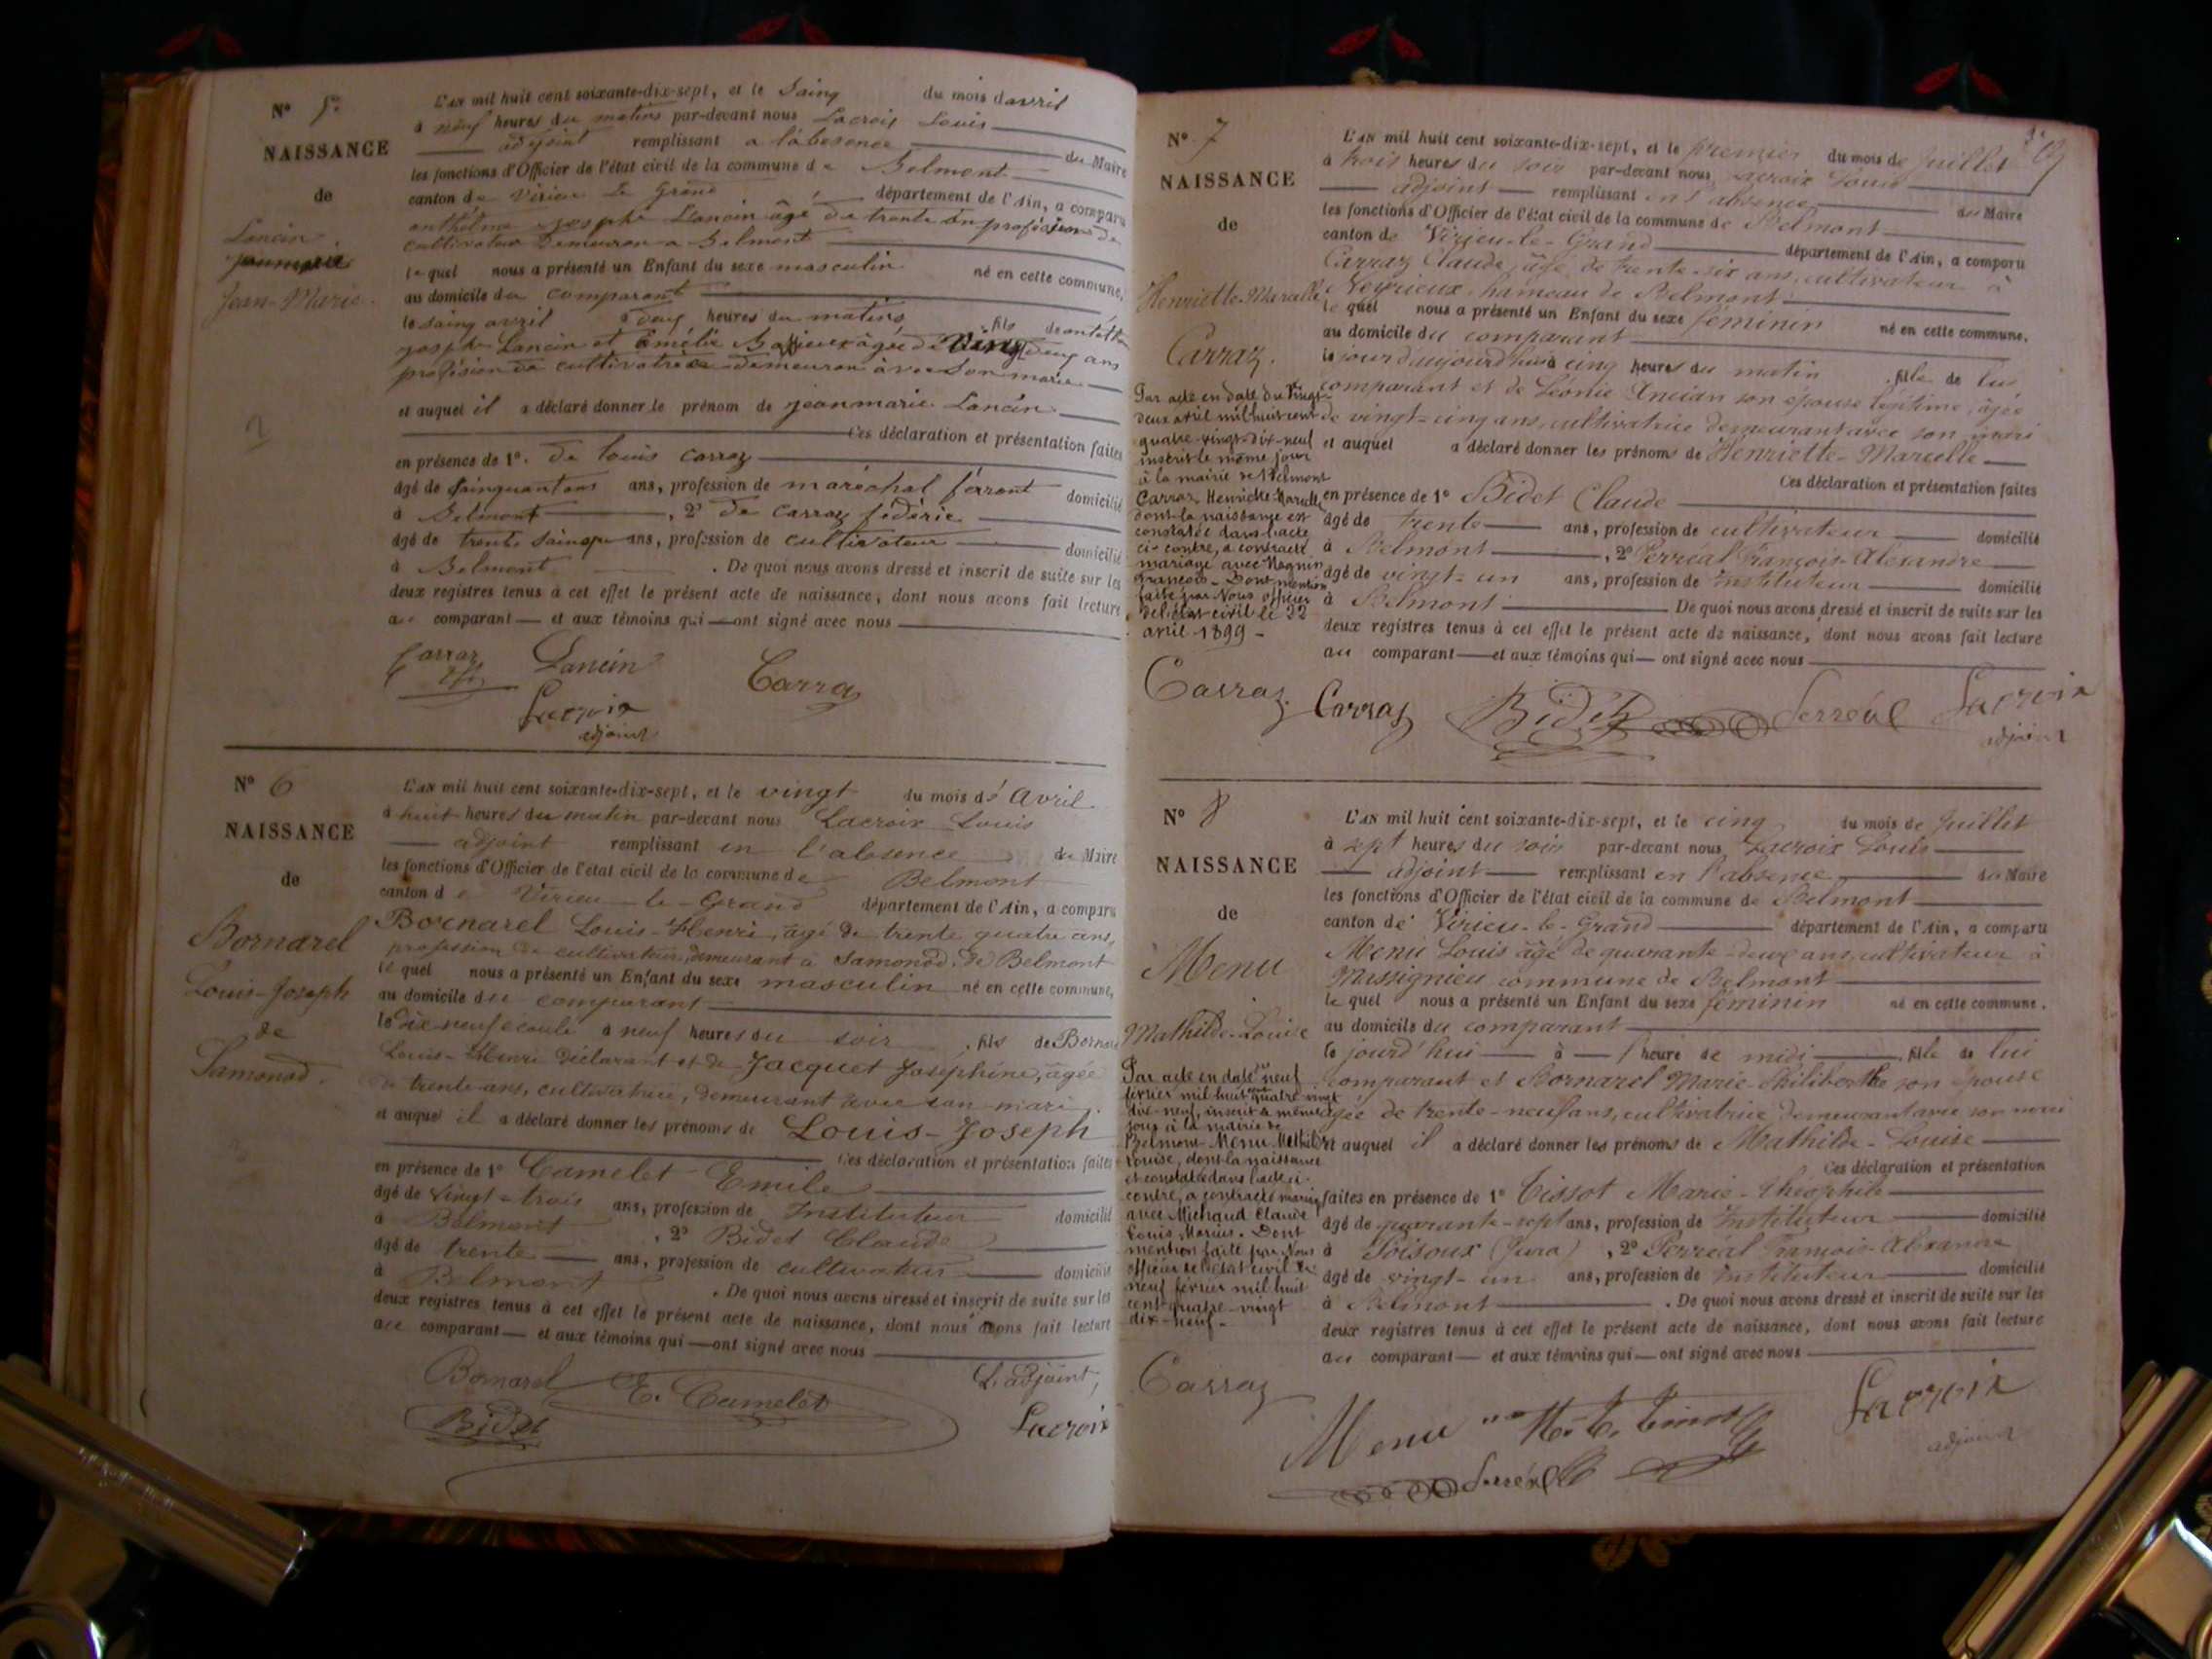 N° 5.
NAISSANCE
de
Lancin
Jean-Marie.
L'an mil huit cent soixante-dix-sept, et le Saing du mois d avril
à neuf heures du matins par-devant nous Lacroix Louis
adjoint remplissant a l'absence du Maire
les fonctions d'Officier de l'état civil de la commune de Belmont
canton de Virieu Le Grand département de l'Ain, a comparu
anthelme josephe Lancin âgé de trente ans profesion de
cultivateur Demeuran a Belmont
lequel nous a présenté un Enfant du sexe masculin né en cette commune,
au domicile du comparant
le saing avril à deux heures du matins fils de
joseph Lancin et Emélie âgée de Vingt deux ans
profésion de cultivatrice demeuran avec Son marie
et auquel il a déclaré donner le prénom de jeanmarie Lancin
Ces déclaration et présentation faites
en présence de 1° De louis Carraz
âgé de Sainquantans ans, profession de maréchal ferrant domicilié
à Belmont, 2° De Carraz fédéric
âgé de trente ans, profession de cultivateur domicilié
à Belmont. De quoi nous avons dressé et inscrit de suite sur les
deux registres tenus à cet effet le présent acte de naissance, dont nous avons fait lecture
au comparant et aux témoins qui ont signé avec nous
Carraz Lancin Carraz
Lacroix
adjoint
N° 6
NAISSANCE
de
Bornarel
Louis-Joseph
de
Samonod.
L'an mil huit cent soixante-dix-sept, et le vingt du mois d'Avril
à huit heures du matin par-devant nous Lacroix Louis
adjoint remplissant en l'absence du Maire
les fonctions d'Officier de l'état civil de la commune de Belmont
canton de Virieu-le-Grand département de l'Ain, a comparu
Bornarel Louis-Henri, âgé de trente quatre ans,
profession de cultivateur, demeurant à Samonod, de Belmont
lequel nous a présenté un Enfant du sexe masculin né en cette commune,
au domicile du comparant
le dix neuf écoulé à neuf heures du soir, fils de Bornarel
Louis-Henri déclarant et de Jacquet Joséphine, âgée
de trente ans, cultivatrice, demeurant avec son mari.
et auquel il a déclaré donner les prénoms de Louis-Joseph
Ces déclaration et présentation faites
en présence de 1° Camelet Emile
âgé de vingt-trois ans, profession de Instituteur domicilié
à Belmont, 2° Bidet Claude
âgé de trente ans, profession de cultivateur domicilié
à Belmont. De quoi nous avons dressé et inscrit de suite sur les
deux registres tenus à cet effet le présent acte de naissance, dont nous avons fait lecture
au comparant et aux témoins qui ont signé avec nous
Bornarel E. Camelet L'adjoint,
Bidet Lacroix
N° 7
NAISSANCE
de
Henriette Marcelle
Carraz.
Par acte en date du vingt-
deux avril mil huit cent
quatre-vingt-dix-neuf
inscrit le même jour
à la mairie de Belmont
Carraz Henriette Marcelle
dont la naissance est
constatée dans l'acte
ci-contre, a contracté
mariage avec Magnin
François. Dont mention
faite par Nous officier
de l'état-civil le 22
avril 1899 -
Carraz.
L'an mil huit cent soixante-dix-sept, et le premier du mois de Juillet
à trois heures du soir par-devant nous Lacroix Louis
adjoint remplissant en l'absence du Maire
les fonctions d'Officier de l'état civil de la commune de Belmont
canton de Virieu-le-Grand département de l'Ain, a comparu
Carraz Claude, âgé de trente-six ans, cultivateur à
Neyrieux, hameau de Belmont
lequel nous a présenté un Enfant du sexe féminin né en cette commune,
au domicile du comparant
le jour d'aujourd'hui à cinq heures du matin, fille de lui
comparant et de Léonie Ancian son épouse légitime, âgée
de vingt-cinq ans, cultivatrice demeurant avec son mari
et auquel a déclaré donner les prénoms de Henriette-Marcelle
Ces déclaration et présentation faites
en présence de 1° Bidet Claude
âgé de trente ans, profession de cultivateur domicilié
à Belmont, 2° Perréal François-Alexandre
âgé de vingt-un ans, profession de Instituteur domicilié
à Belmont De quoi nous avons dressé et inscrit de suite sur les
deux registres tenus à cet effet le présent acte de naissance, dont nous avons fait lecture
au comparant et aux témoins qui ont signé avec nous
Carraz Bidet Perréal Lacroix
adjoint
N° 8
NAISSANCE
de
Menu
Mathilde-Louise
Par acte en date du neuf
février mil huit quatre vingt
dix-neuf, inscrit le même
jour à la mairie de
Belmont Menu Mathilde
Louise, dont la naissance
est constatée dans l'acte ci-
contre, a contracté mariage
avec Michaud Claude
Louis Marius. Dont
mention faite par Nous
officier de l'état civil le
neuf février mil huit
cent quatre-vingt
dix-neuf -
Carraz
L'an mil huit cent soixante-dix-sept, et le cinq du mois de Juillet
à sept heures du soir par-devant nous Lacroix Louis
adjoint remplissant en l'absence du Maire
les fonctions d'Officier de l'état civil de la commune de Belmont
canton de Virieu-le-Grand département de l'Ain, a comparu
Menu Louis âgé de quarante-deux ans, cultivateur à
Massignieu commune de Belmont
lequel nous a présenté un Enfant du sexe féminin né en cette commune.
au domicile du comparant
le jourd'hui à l'heure de midi, fille de lui
comparant et Bornarel Marie-Philiberthe son épouse
âgée de trente-neuf ans, cultivatrice demeurant avec son mari
et auquel il a déclaré donner les prénoms de Mathilde-Louise
Ces déclaration et présentation
faites en présence de 1° Tissot Marie-Théophile
âgé de quarante-sept ans, profession de Instituteur domicilié
à Poisoux (Jura), 2° Perréal François-Alexandre
âgé de vingt-un ans, profession de Instituteur domicilié
à Belmont. De quoi nous avons dressé et inscrit de suite sur les
deux registres tenus à cet effet le présent acte de naissance, dont nous avons fait lecture
au comparant et aux témoins qui ont signé avec nous
Menu Lacroix
Perréal adjoint